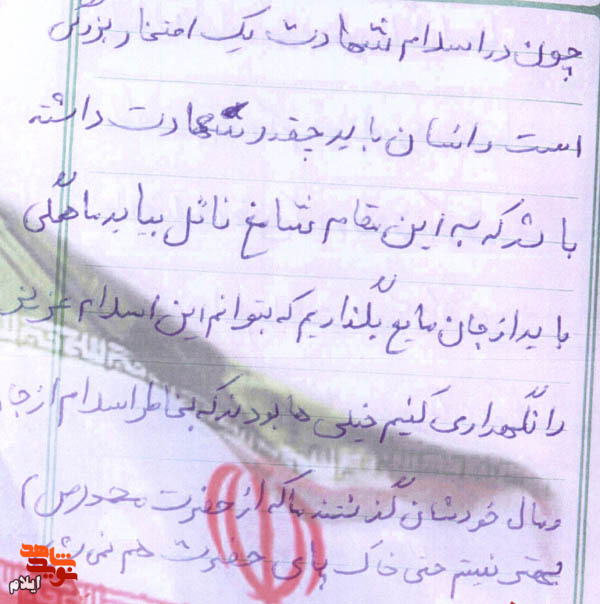 چون در اسلام شهادت یک افتخار بزرگی
است و انسان باید چقدر شهادت داشته
باشد که به این مقام شامخ نائل بیاید ما همگی
باید از جان مایع بگذاریم که بتوانم این اسلام عزیز
را نگهداری کنیم خیلی ها بودند که بخاطر اسلام از جا
و مال خودشان گذشتند ما که از حضرت محمد (ص)
بهتر نیستم حتی خاک پای حضرت هم نمی ش
شاهد
نوید
ایلام